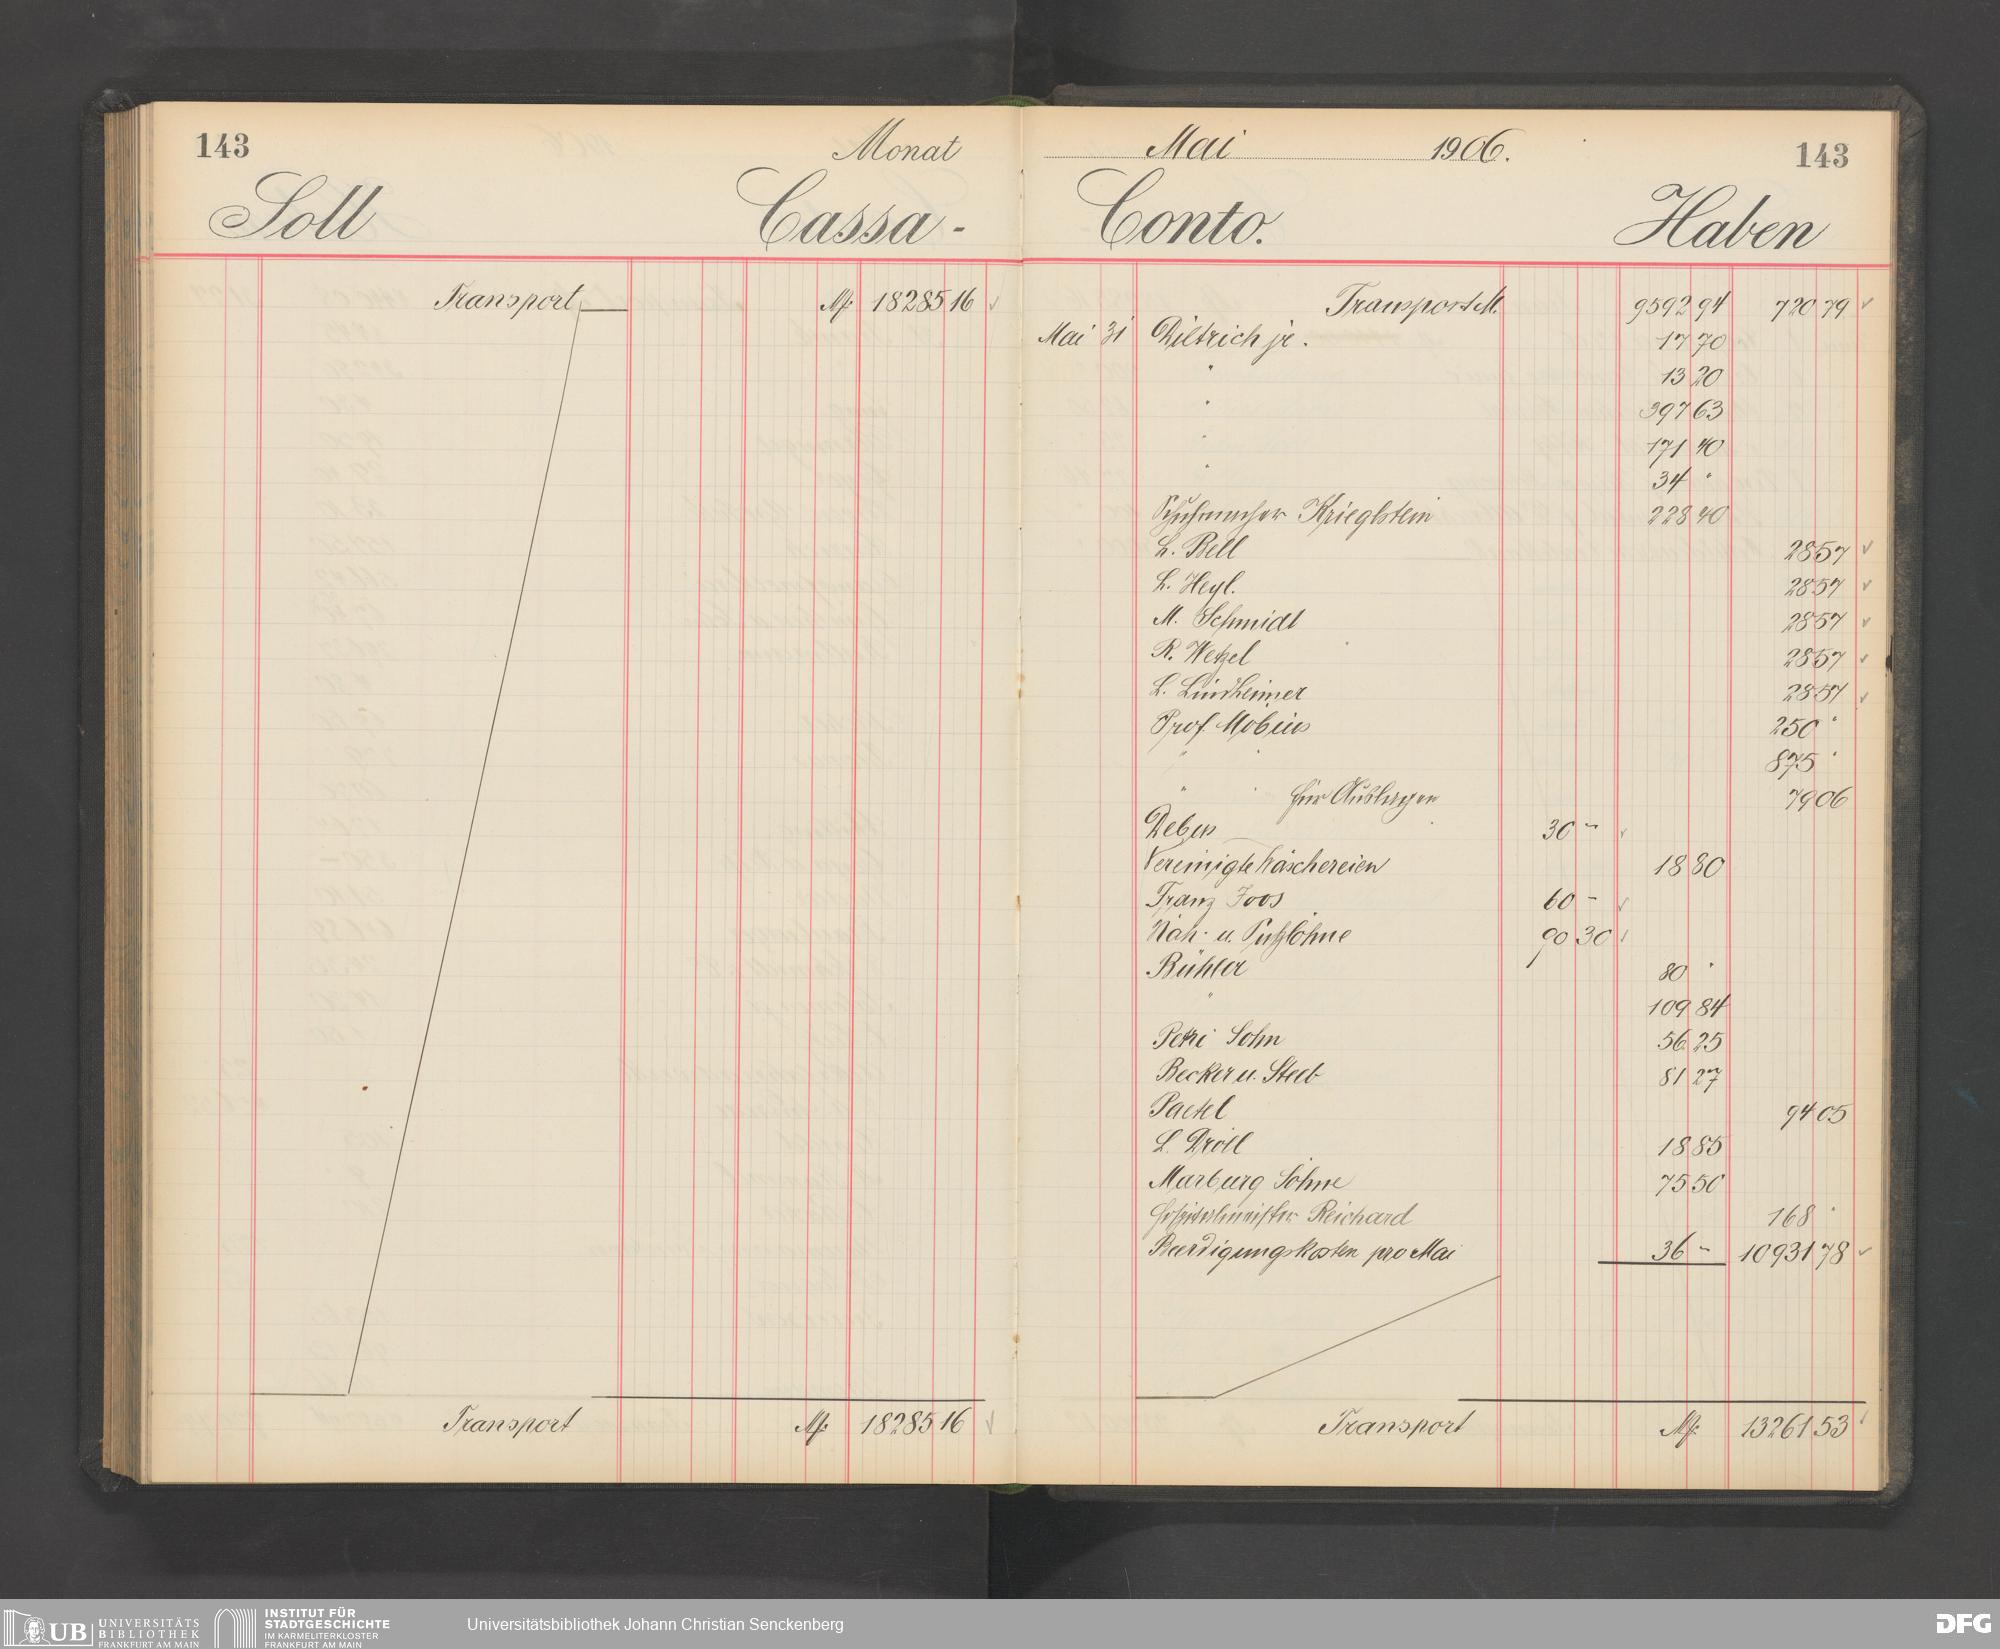 143 Monat Mai 1906. 143
Soll Cassa - Conto. Haben
Transport M 18285 16
Transport M 18285 16
Transport M. 9592 94 720 79
Mai 31 Diltrich jr. 17 70
" 13 20
" 397 63
" 171 40
" 34 "
Schuhmacher Krieglstein 228 40
L. Bell 28 57
L. Heyl. 28 57
M. Schmidt 28 57
R. Wetzel 28 57
L. Lindheimer 28 57
Prof. Möbius 250 "
" " 875 "
" " für Auslagen 79 06
30 -
Vereinigte Wäschereien 18 80
Franz Joos 60 -
Näh- u. Putzlöhne 90 30
Bühler 80 "
" 109 84
Petri Sohn 56 25
Becker u. Steeb 81 27
Paetel 94 05
L. Dröll 18 85
Marburg Söhne 75 50
Hospitalmeister Reichard 168 "
Beerdigungskosten pro Mai 36 - 10931 78
Transport M 13261 53
UB UNIVERSITÄTS
BIBLIOTHEK
FRANKFURT AM MAIN
INSTITUT FÜR
STADTGESCHICHTE
IM KARMELITERKLOSTER
FRANKFURT AM MAIN
Universitätsbibliothek Johann Christian Senckenberg
DFG